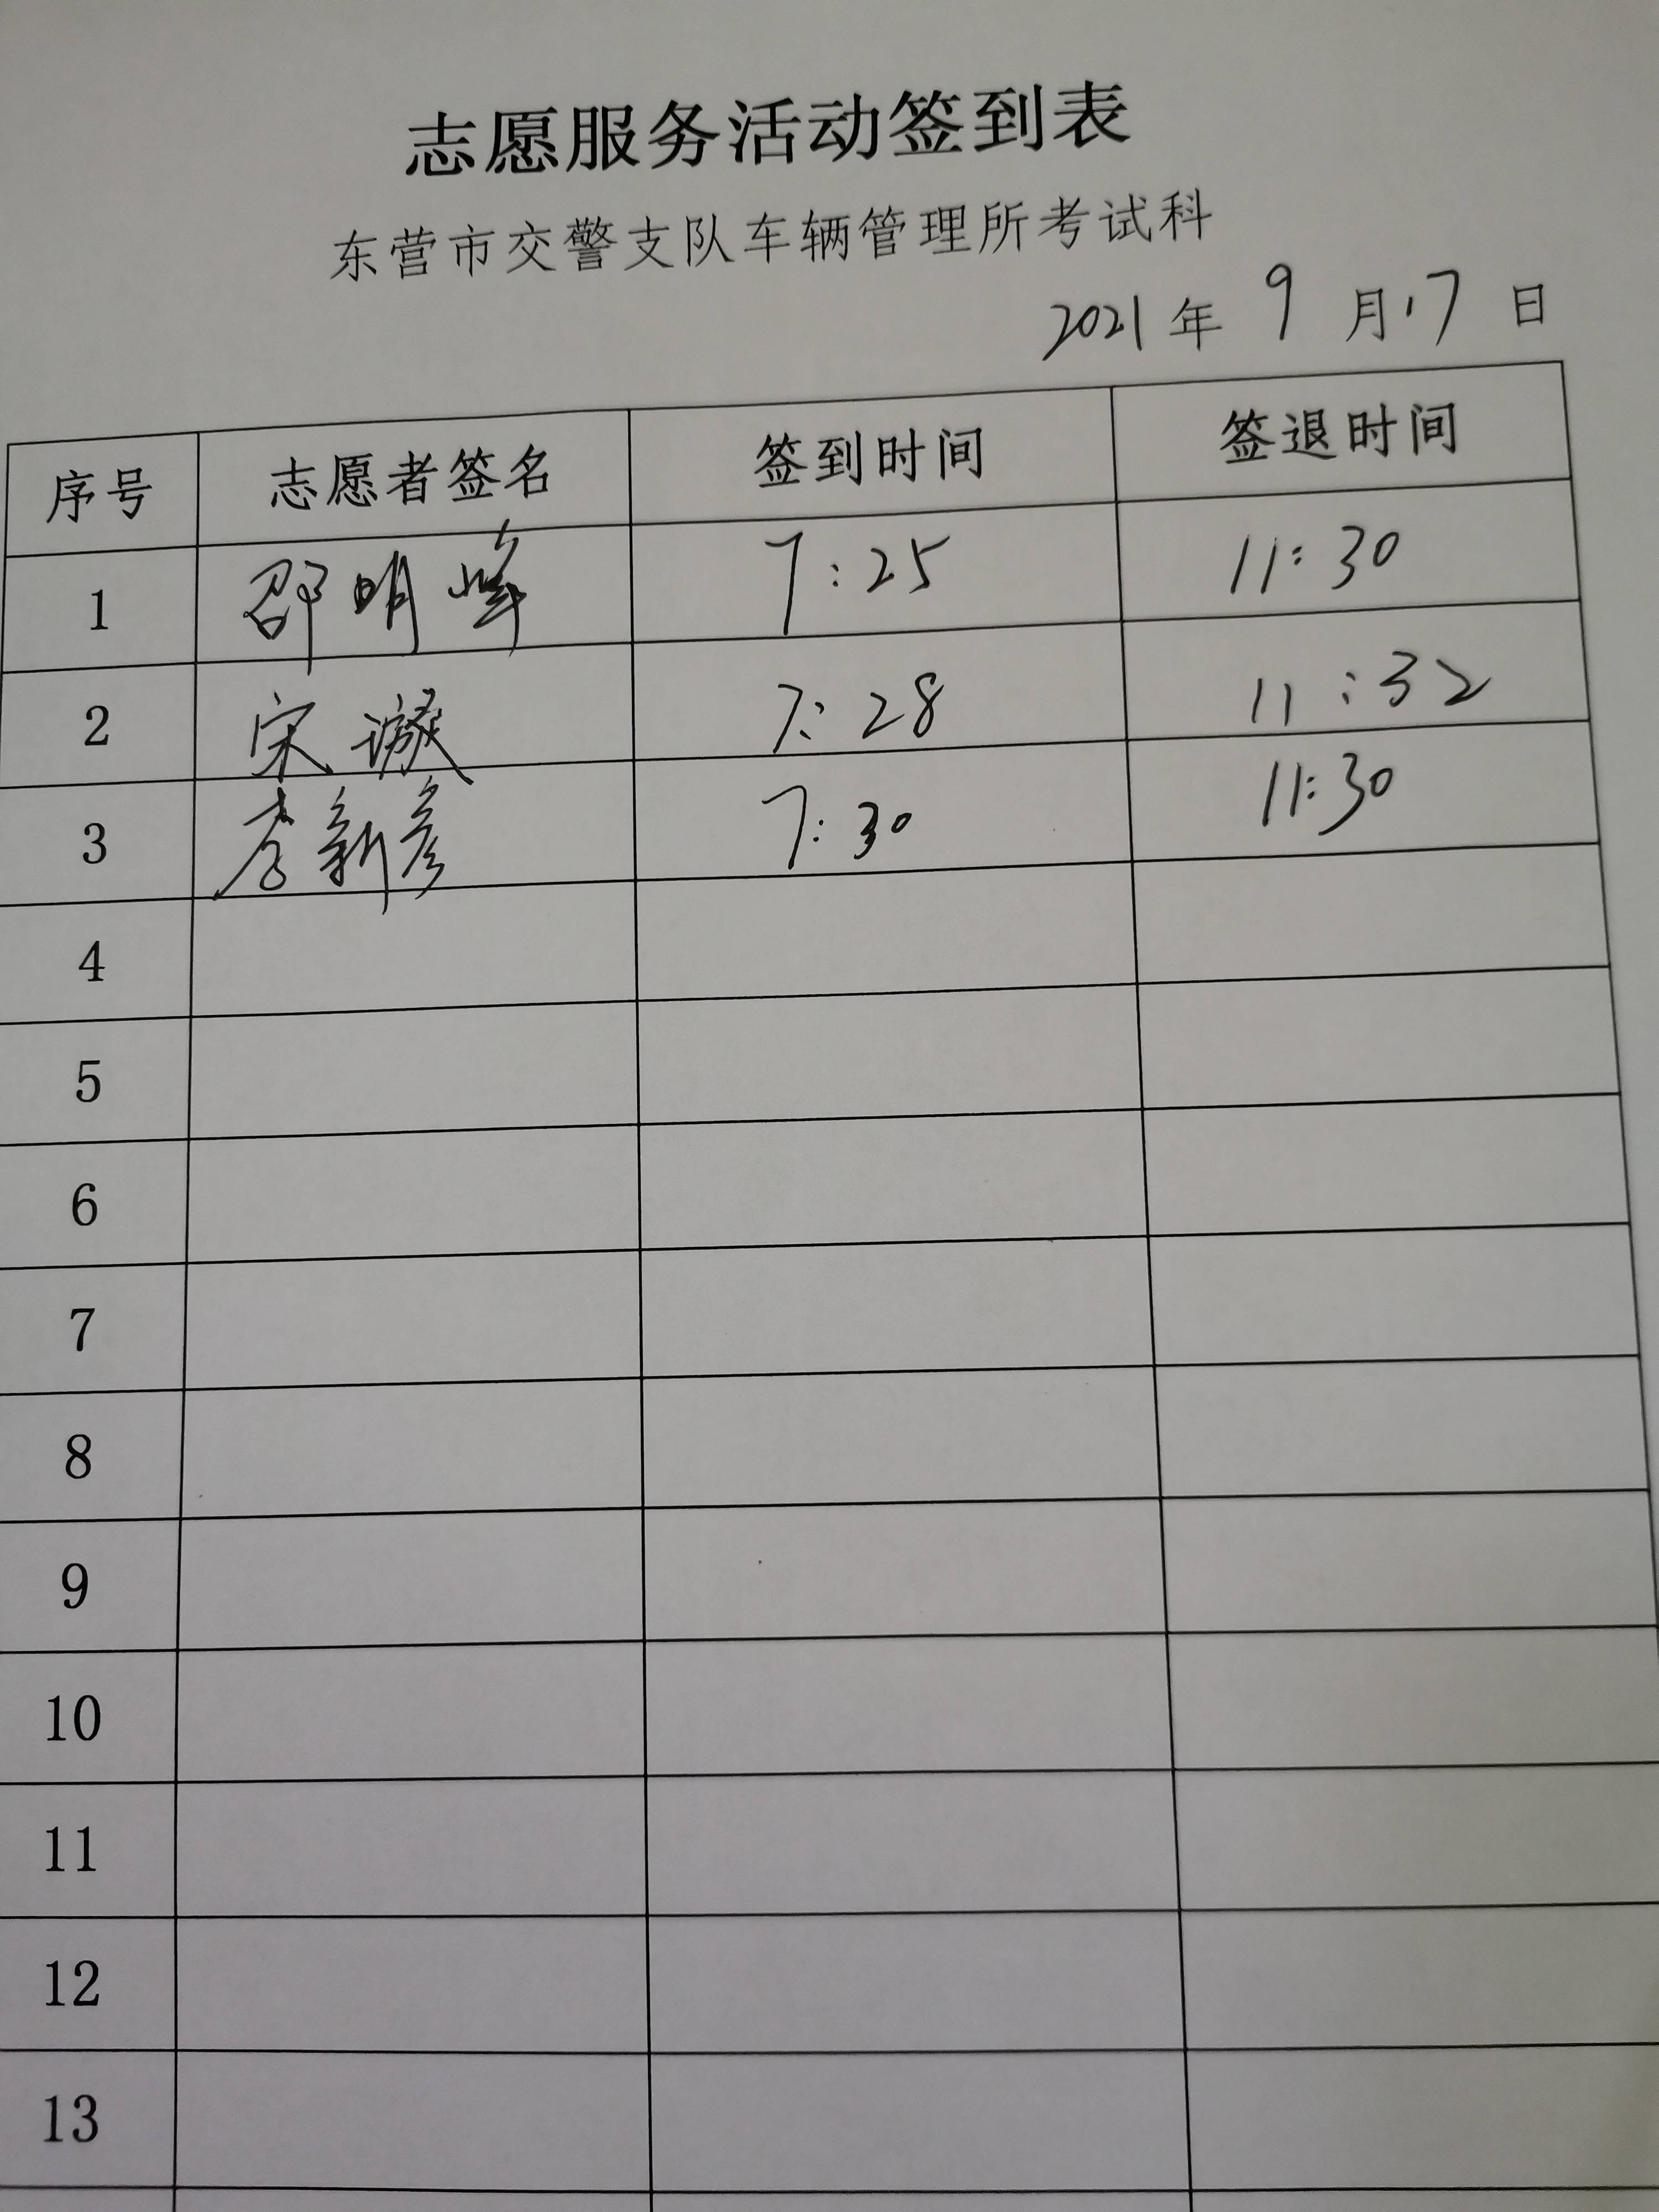 志愿服务活动签到表
东营市交警支队车辆管理所考试科
2021年 9 月 17 日
序号 志愿者签名 签到时间 签退时间
1 邵明峰 7:25 11:30
2 宋 7:28 11:32
3 李新彦 7:30 11:30
4
5
6
7
8
9
10
11
12
13